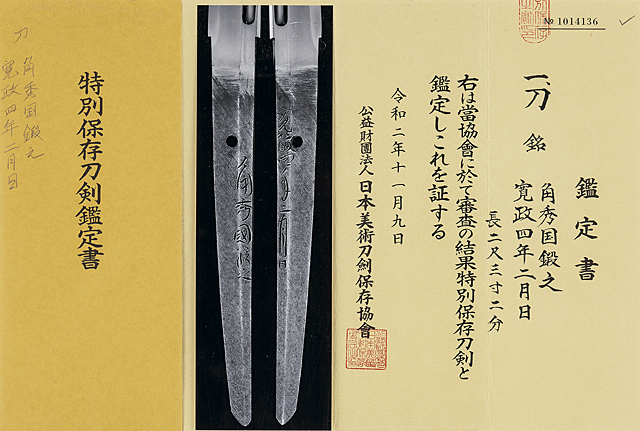 № 1014136
鑑定書
一、刀 銘 角秀国鍛之
寛政四年二月日
長二尺三寸二分
右は當協會に於て審査の結果特別保存刀剣と
鑑定しこれを証する
令和二年十一月九日
公益財團法人 日本美術刀剣保存協會
角秀國鍛之
寛政四年二月日
特別保存刀剣鑑定書
刀 角秀国鍛之
寛政四年二月日